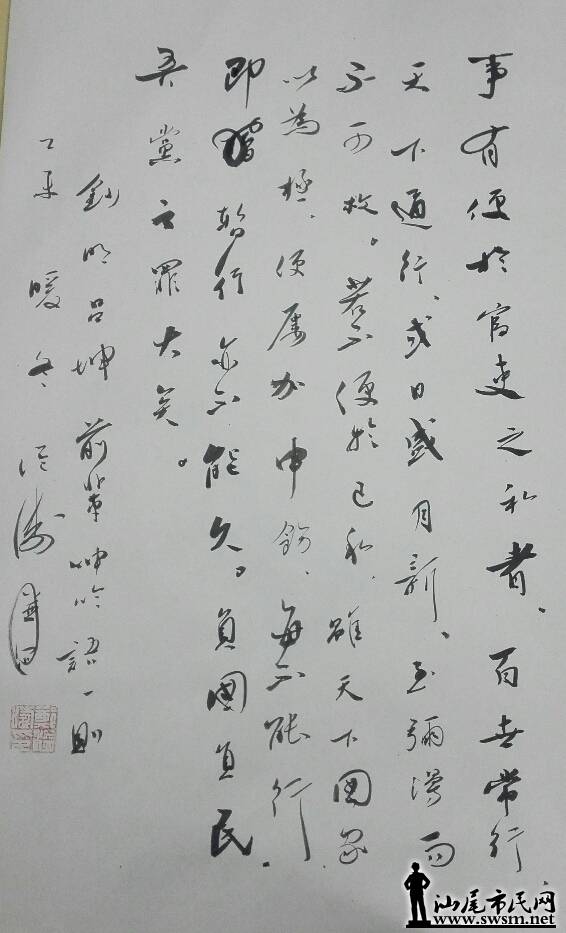 事有便於官吏之私者、百世常行
天下通行、或日盛月新、至彌漫而
不可救。若不便於己私、雖天下國家
以為極、便屢加申飭、每不能行
即暫行亦不能久。負國負民
吾黨之罪大矣。
鈔明呂坤前輩呻吟語一則
暖冬
汕尾市民网
www.swsm.net